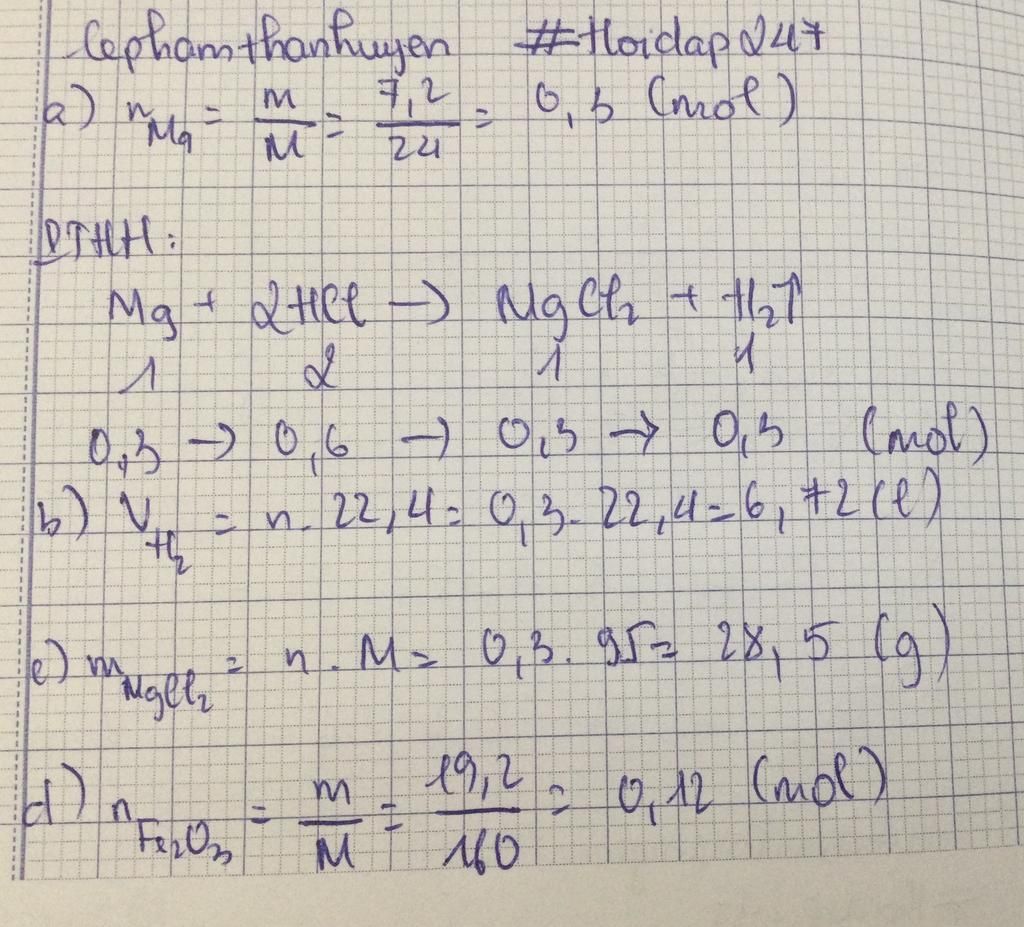 Lephamthanhuyen #Hoidap247
a) n_Mg = m/M = 7,2/24 = 0,3 (mol)
PTHH:
Mg + 2HCl → MgCl₂ + H₂↑
1 2 1 1
0,3 → 0,6 → 0,3 → 0,3 (mol)
b) V_H₂ = n . 22,4 = 0,3 . 22,4 = 6,72 (l)
c) m_MgCl₂ = n . M = 0,3 . 95 = 28,5 (g)
d) n_Fe₂O₃ = m/M = 19,2/160 = 0,12 (mol)